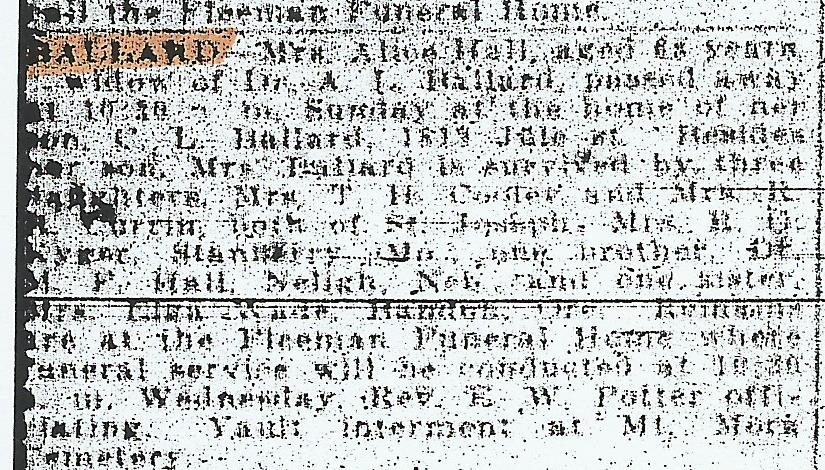 the Fleeman Funeral Home.
BALLARD—Mrs. Alice Hall, aged 68 years
widow of Dr. A. L. Ballard, passed away
at 10:30 m. Sunday at the home of her
son, C. L. Ballard, 1813 st. Besides
her son, Mrs. Ballard is survived by three
daughters, Mrs. T. H. and Mrs. R.
both of St. Joseph, Mrs. R.
Stanberry, Mo.; one brother, Dr.
F. Hall, Neligh, Neb., and one sister,
Mrs. Bandon, Ore. Remains
are at the Fleeman Funeral Home where
funeral service will be conducted at 10:30
m. Wednesday, Rev. E. W. Potter offi-
ciating. Vault interment at Mt. Mora
cemetery.